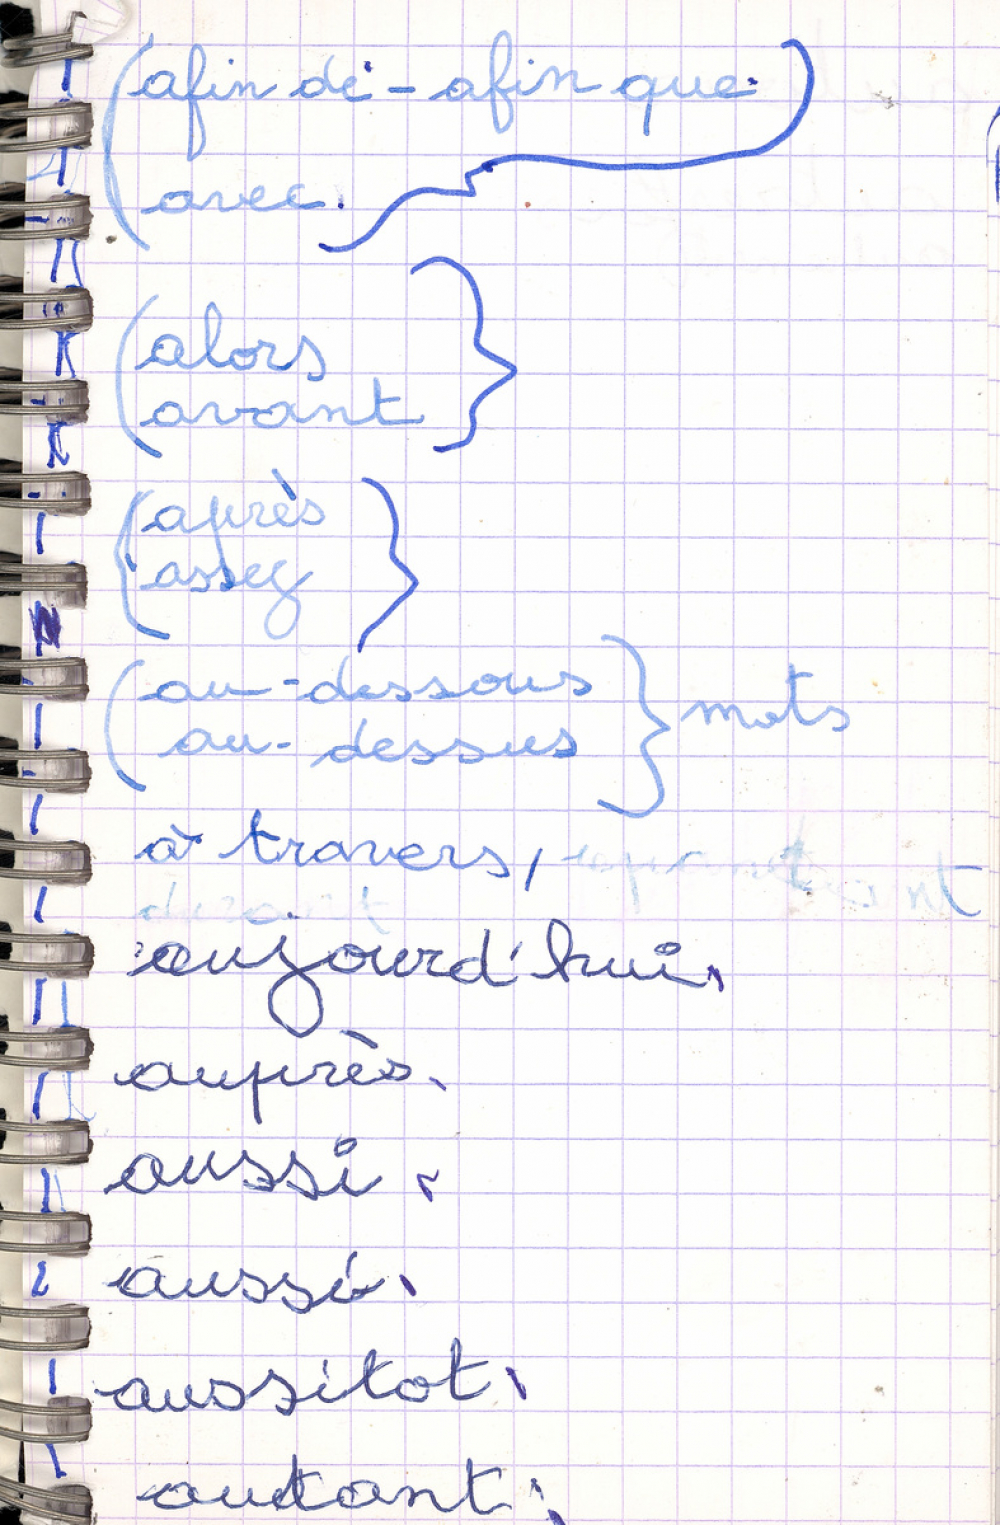 (afin de - afin que.
avec.)
(alors
avant}
{après
assez}
(au-dessous
au-dessus} mots
à travers,
durant
aujourd'hui.
auprès.
aussi.
aussi.
aussitot.
autant.